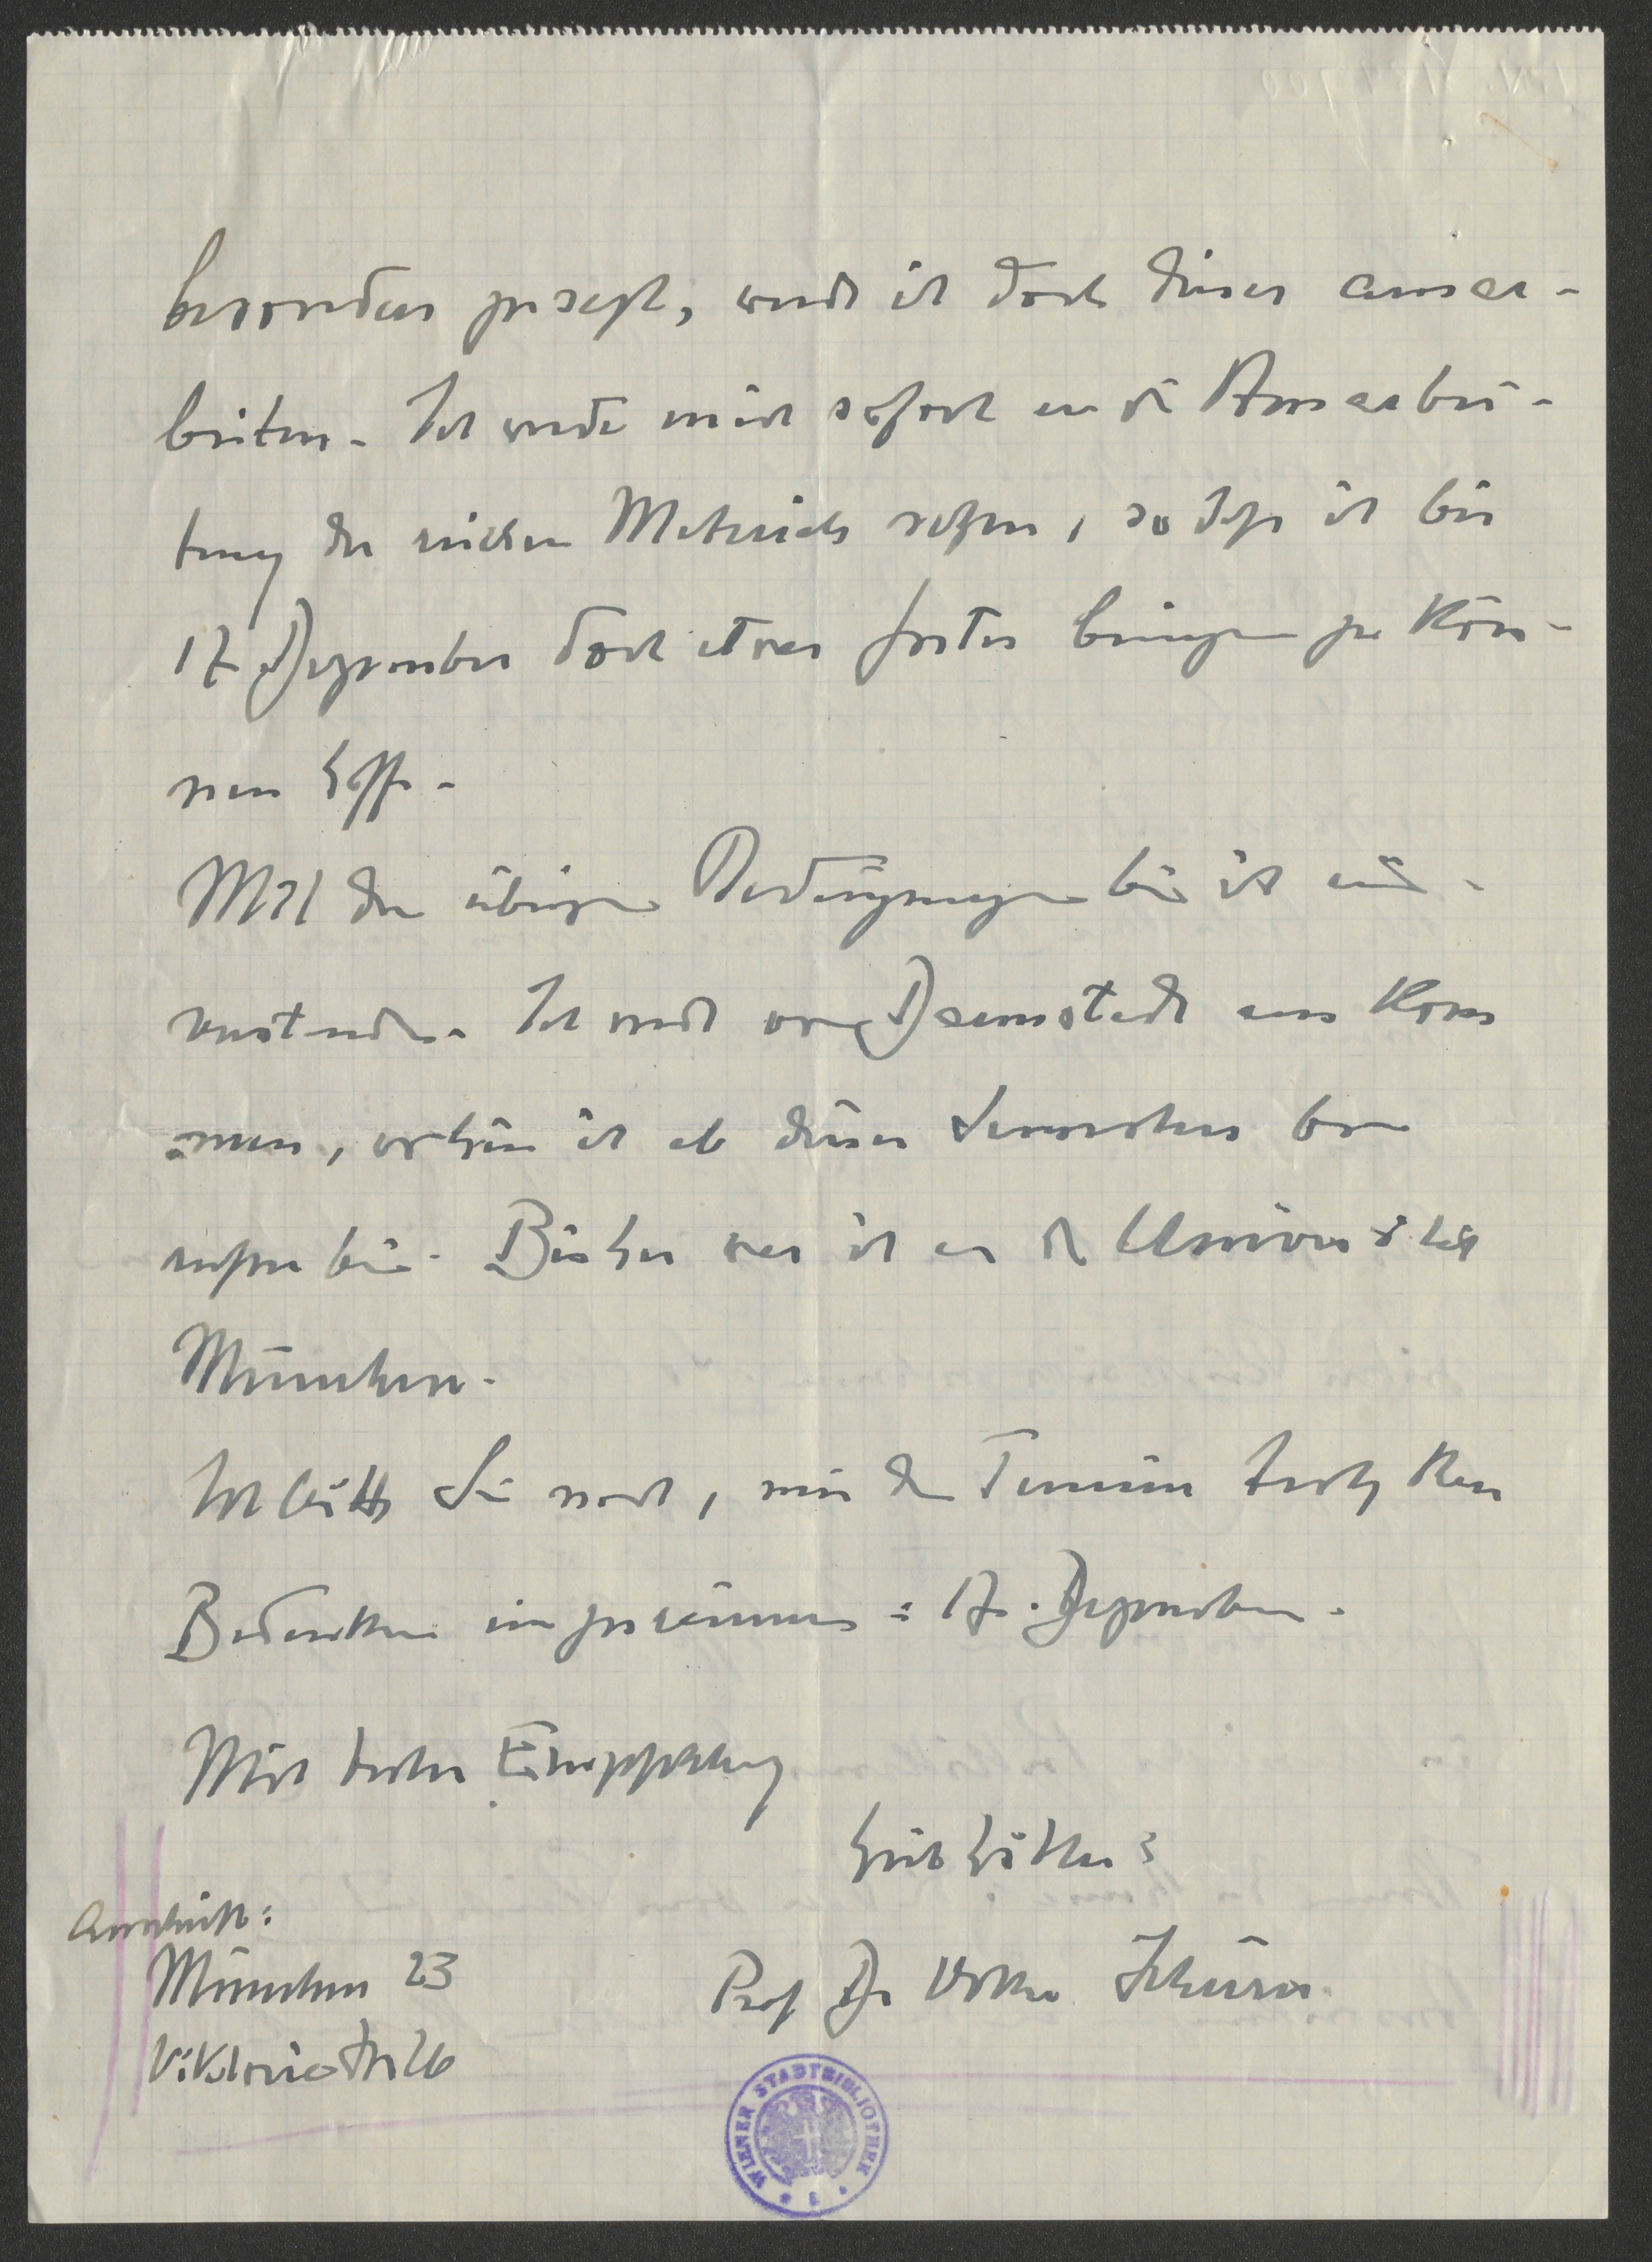 besonders zusagt, werde ich doch dieses ausar-
beiten. Ich werde mich sofort an die Ausarbei-
tung des reichen Materials setzen, so daß ich bis
17. Dezember doch etwas Gutes bringen zu kön-
nen hoffe.
Mit den übrigen Bedingungen bin ich ein-
verstanden. Ich werde von Darmstadt aus kom
men, wohin ich ab dieses Semester be
rufen bin. Bisher war ich an der Universität
München.
Ich bitte Sie noch, mir den Termin
einzuräumen: 17. Dezember.
Mit bester Empfehlung
Prof Dr
Anschrift:
München 23
Viktoriastr 26
WIENER STADTBIBLIOTHEK